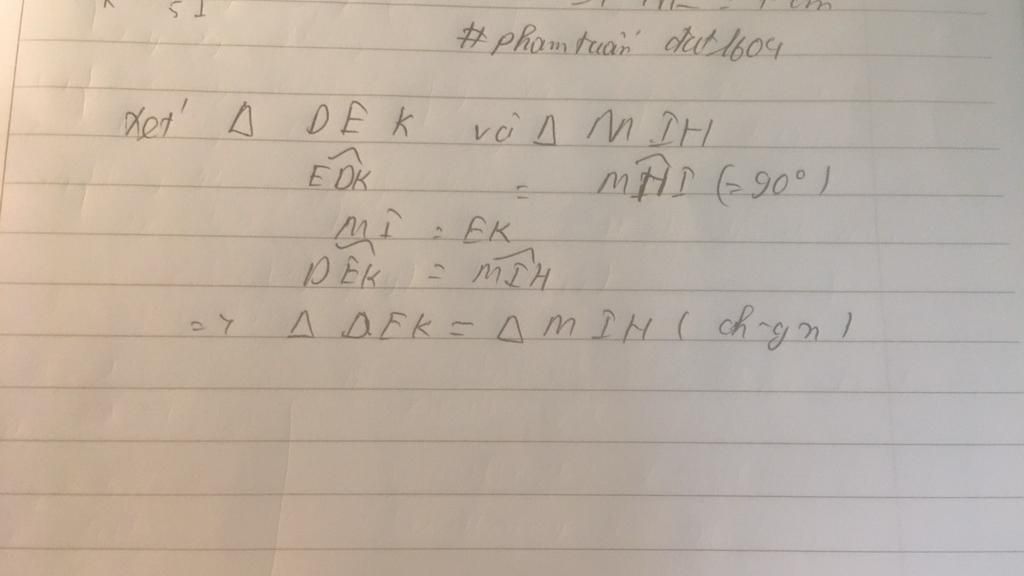 # phamtuấn đạt1604
Xét Δ DEK và Δ MIH
EDK̂ = MHI (= 90°)
MI = EK
DEK = MIH
=> Δ DEK = Δ MIH ( ch-gn )